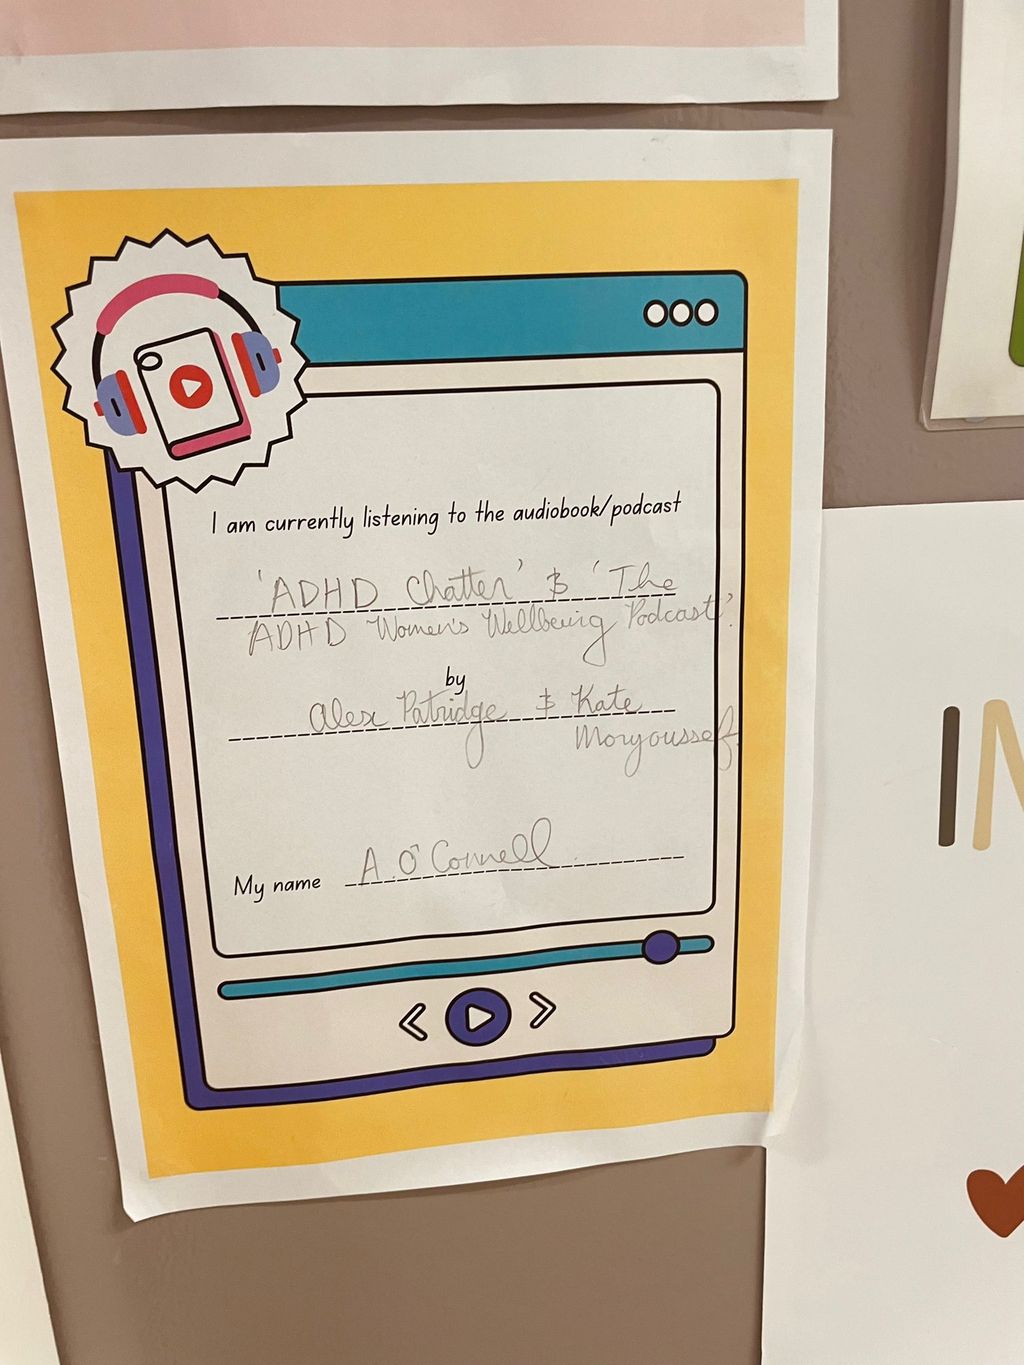 I am currently listening to the audiobook/podcast
'ADHD Chatter' & 'The
ADHD Women's Wellbeing Podcast'.
by
Alex Patridge & Kate
Moryoussef.
My name A. O'Connell
IN